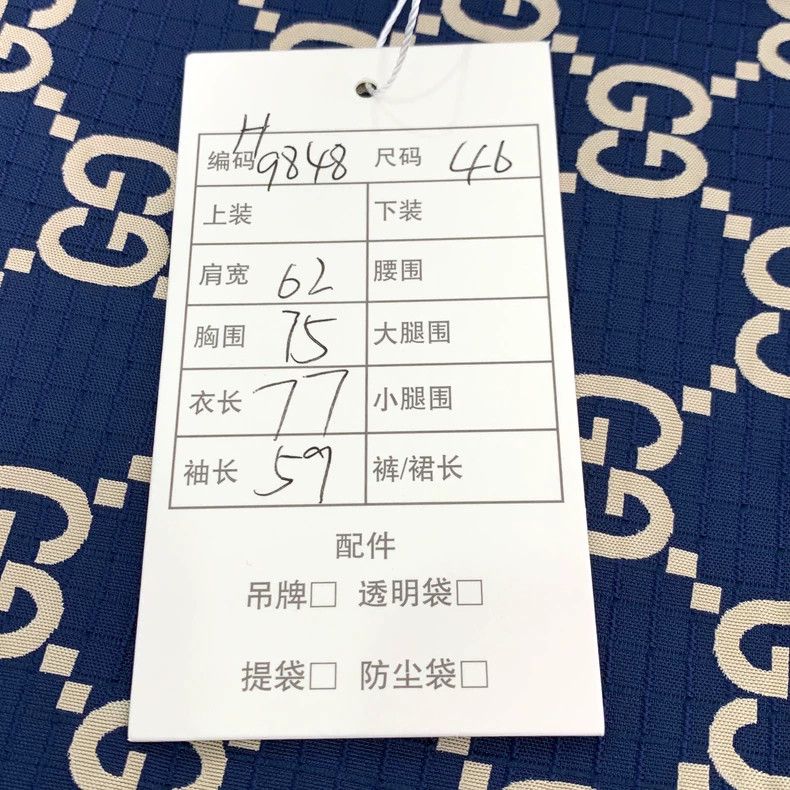 编码 H9848 尺码 46
上装 下装
肩宽 62 腰围
胸围 75 大腿围
衣长 77 小腿围
袖长 59 裤/裙长
配件
吊牌□ 透明袋□
提袋□ 防尘袋□